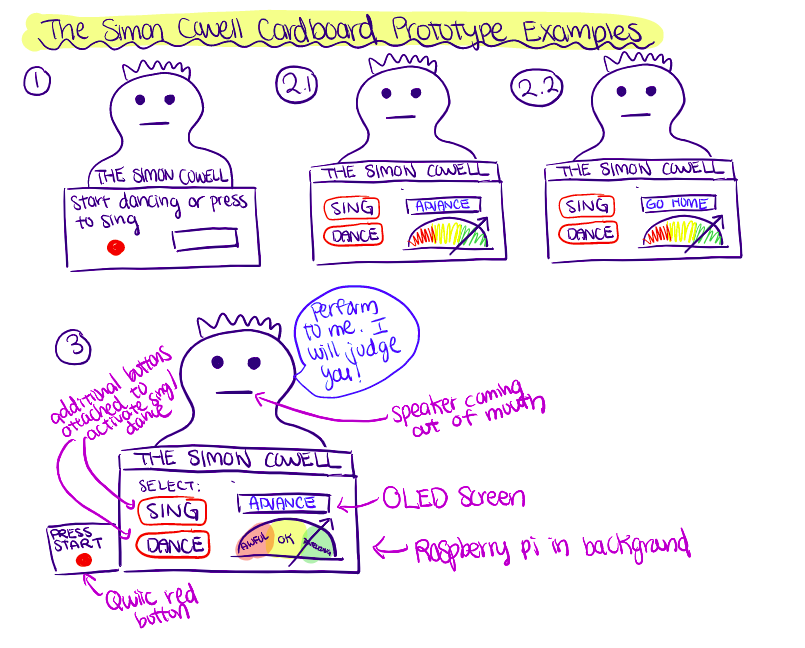 The Simon Cowell Cardboard Prototype Examples
1
THE SIMON COWELL
Start dancing or press
to sing
2.1
THE SIMON COWELL
SING
ADVANCE
DANCE
2.2
THE SIMON COWELL
SING
GO HOME
DANCE
3
Perform
to me. I
will judge
you!
additional buttons
attached to
activate sing/
dance
speaker coming
out of mouth
THE SIMON COWELL
SELECT:
SING
ADVANCE
OLED Screen
PRESS
START
DANCE
AWFUL
OK
AMAZING
Raspberry pi in background
Qwiic red
button